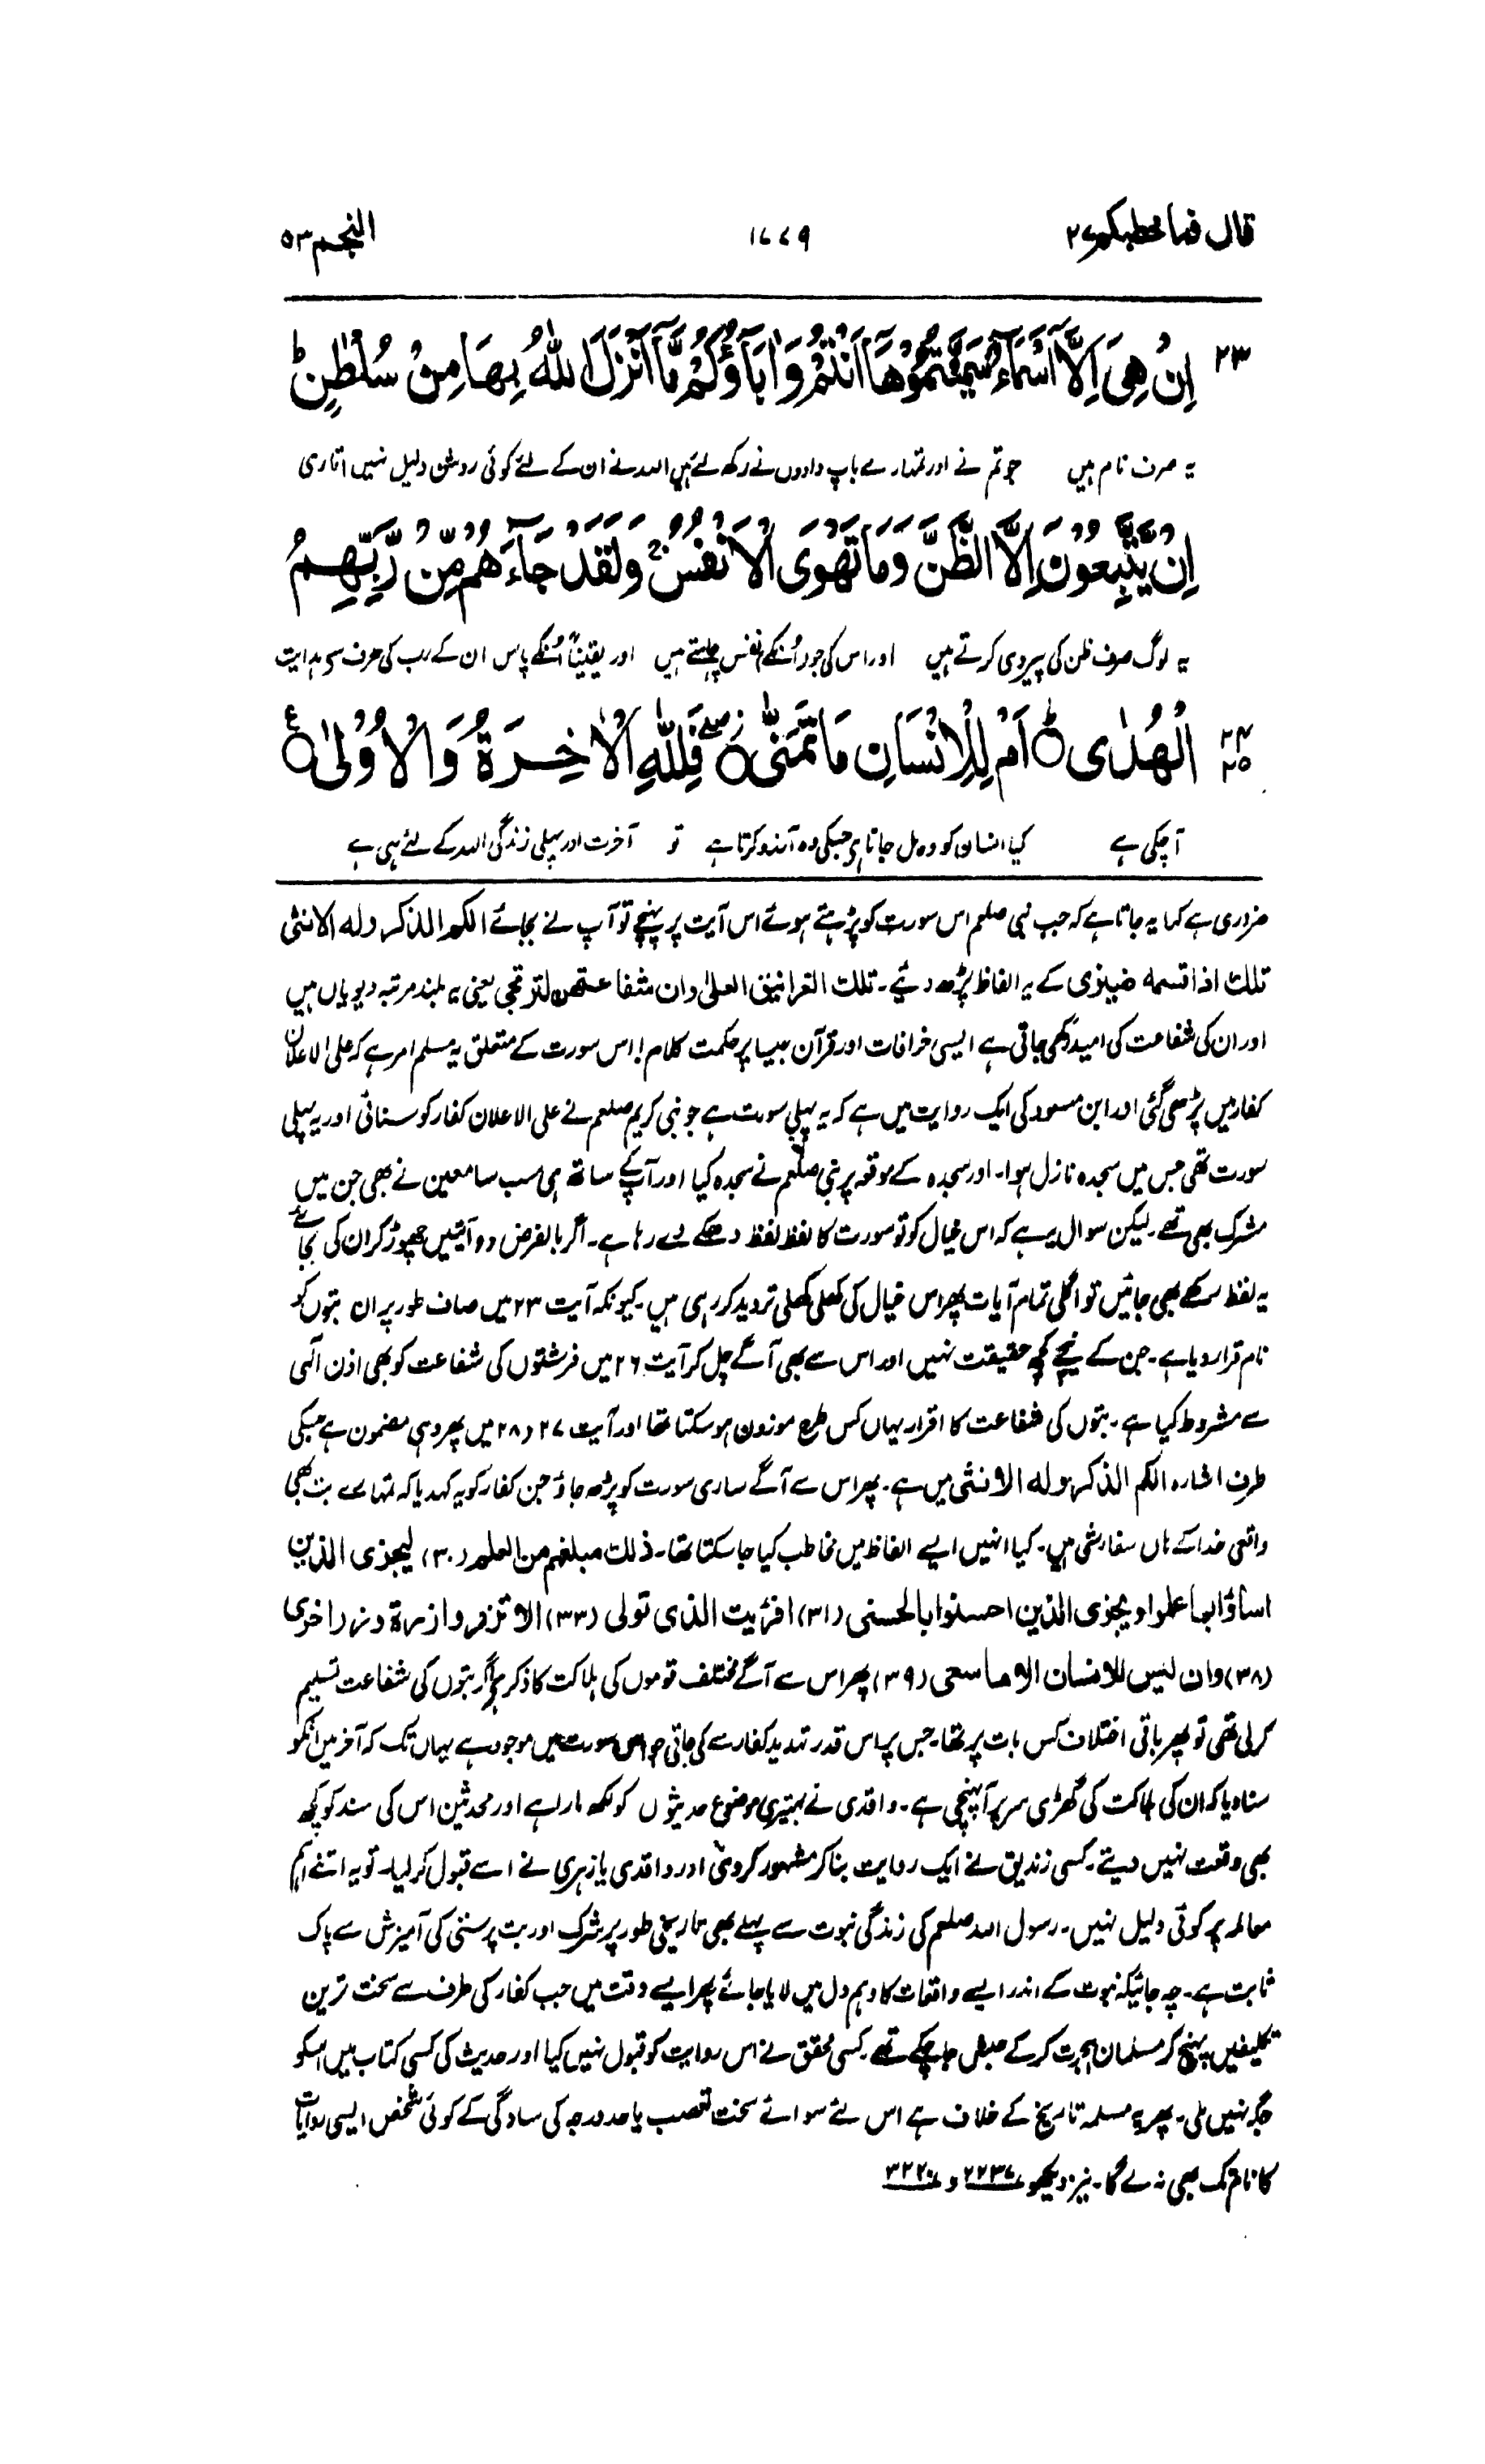 قال فما خطبکم ۲۷ ۱۷۷۹ النجم ۵۳
۲۳ اِنْ هِیَ اِلَّاۤ اَسْمَآءٌ سَمَّیْتُمُوْهَاۤ اَنْتُمْ وَاٰبَآؤُكُمْ مَّاۤ اَنْزَلَ اللّٰهُ بِهَا مِنْ سُلْطٰنٍ ؕ
یہ صرف نام ہیں جو تم نے اور تمہارے باپ دادوں نے رکھ لئے ہیں اللہ نے ان کے لئے کوئی روشن دلیل نہیں اتاری
اِنْ یَّتَّبِعُوْنَ اِلَّا الظَّنَّ وَمَا تَهْوَی الْاَنْفُسُ ۚ وَلَقَدْ جَآءَهُمْ مِّنْ رَّبِّهِمُ
یہ لوگ صرف ظن کی پیروی کرتے ہیں اور اس کی جو اُنکے نفس چاہتے ہیں اور یقیناً اُنکے پاس ان کے رب کی طرف سے ہدایت
۲۴ ۲۵ الْهُدٰی ؕ اَمْ لِلْاِنْسَانِ مَا تَمَنّٰی ۖ فَلِلّٰهِ الْاٰخِرَةُ وَالْاُوْلٰی ع
آچکی ہے کیا انسان کو وہ مل جاتا ہے جسکی وہ آرزو کرتا ہے تو آخرت اور پہلی زندگی اللہ کے لئے ہی ہے
ضروری ہے کہا یہ جاتا ہے کہ جب نبی صلعم اس سورت کو پڑہتے ہوئے اس آیت پر پہنچے تو آپ نے بجائے الکم الذکر وله الانثی
تلك اذا قسمة ضیزی کے یہ الفاظ پڑھ دئیے۔ تلك الغرانیق العلیٰ وان شفاعتهن لترتجی یعنی یہ بلند مرتبہ دیویاں ہیں
اور ان کی شفاعت کی امید رکھی جاتی ہے ایسی خرافات اور قرآن جیسا پر حکمت کلام! اس سورت کے متعلق یہ مسلم امر ہے کہ علی الاعلان
کفار میں پڑھی گئی اور ابن مسعود کی ایک روایت میں ہے کہ یہ پہلی سورت ہے جو نبی کریم صلعم نے علی الاعلان کفار کو سنائی اور یہ پہلی
سورت تھی جس میں سجدہ نازل ہوا۔ اور سجدہ کے موقعہ پر نبی صلعم نے سجدہ کیا اور آپکے ساتھ ہی سب سامعین نے بھی جن میں
مشرک بھی تھے۔ لیکن سوال یہ ہے کہ اس خیال کو تو سورت کا لفظ لفظ دھکے دے رہا ہے۔ اگر بالفرض دو آئتیں چھوڑ کر ان کی بجائے
یہ لفظ رکھے بھی جائیں تو اگلی تمام آیات پھر اس خیال کی کھلی کھلی تردید کر رہی ہیں۔ کیونکہ آیت ۲۳ میں صاف طور پر ان بتوں کو
نام قرار دیا ہے۔ جن کے نیچے کچھ حقیقت نہیں اور اس سے بھی آگے چل کر آیت ۲۶ میں فرشتوں کی شفاعت کو بھی اذن الٰہی
سے مشروط کیا ہے۔ بتوں کی شفاعت کا اقرار یہاں کس طرح موزون ہو سکتا تھا اور آیت ۲۷ و ۲۸ میں پھر وہی مضمون ہے جسکی
طرف اشارہ الکم الذکر وله الانثی میں ہے۔ پھر اس سے آگے ساری سورت کو پڑھ جاؤ جن کفار کو یہ کہدیا کہ تمہارے بت بھی
واقعی خدا کے ہاں سفارشی ہیں۔ کیا انہیں ایسے الفاظ میں مخاطب کیا جا سکتا تھا۔ ذلك مبلغهم من العلم (۳۰) لیجزی الذین
اساؤا بما عملوا ویجزی الذین احسنوا بالحسنی (۳۱) افرءیت الذی تولی (۳۳) الا تزر وازرة وزر اخری
(۳۸) وان لیس للانسان الا ما سعی (۳۹) پھر اس سے آگے مختلف قوموں کی ہلاکت کا ذکر ہے اگر بتوں کی شفاعت تسلیم
کر لی تھی تو پھر باقی اختلاف کس بات پر تھا۔ جس پر اس قدر تہدید کفار سے کی جاتی جو اس سورت میں موجود ہے یہاں تک کہ آخر میں انکو
سنا دیا کہ ان کی ہلاکت کی گھڑی سر پر آپہنچی ہے۔ واقدی نے بہتیری موضوع حدیثوں کو لکھ مارا ہے اور محدثین اس کی سند کو کچھ
بھی وقعت نہیں دیتے۔ کسی زندیق نے ایک روایت بنا کر مشہور کر دی اور واقدی یا زہری نے اسے قبول کر لیا۔ تو یہ اتنے اہم
معاملہ پر کوئی دلیل نہیں۔ رسول اللہ صلعم کی زندگی نبوت سے پہلے بھی تاریخی طور پر شرک اور بت پرستی کی آمیزش سے پاک
ثابت ہے۔ چہ جائیکہ نبوت کے اندر ایسے واقعات کا وہم دل میں لایا جائے پھر ایسے وقت میں جب کفار کی طرف سے سخت ترین
تکلیفیں پہنچ کر مسلمان ہجرت کر کے حبش جا چکے تھے۔ کسی محقق نے اس روایت کو قبول نہیں کیا اور حدیث کی کسی کتاب میں اسکو
جگہ نہیں ملی۔ پھر یہ مسلمہ تاریخ کے خلاف ہے اس لئے سوائے سخت تعصب یا حد درجہ کی سادگی کے کوئی شخص ایسی روایات
کا نام تک بھی نہ لے گا۔ نیز دیکھو ۲۲۳۷ و ۳۲۲۰